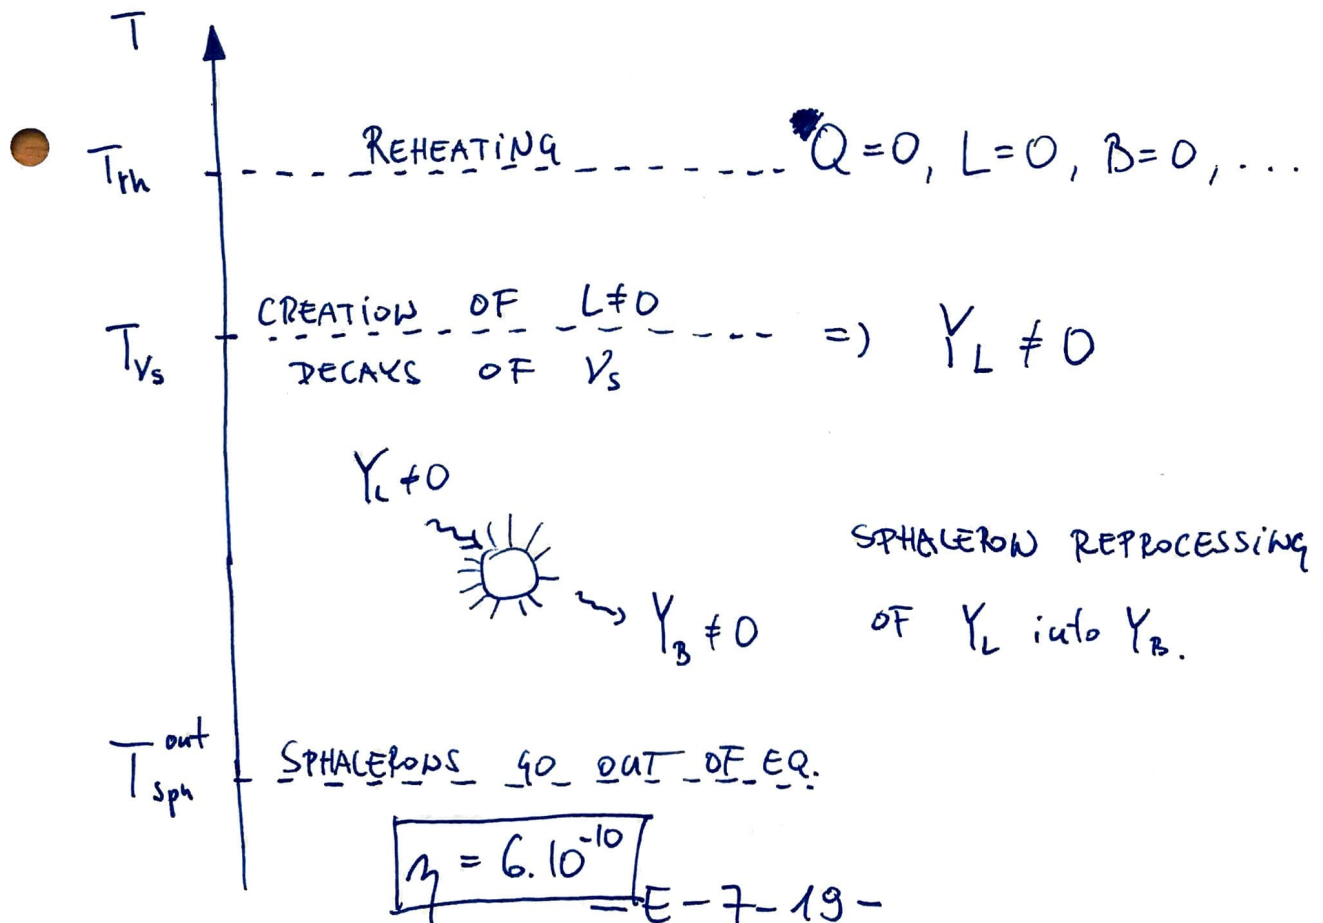 T
T_rh REHEATING Q=0, L=0, B=0, ...
CREATION OF L≠0
T_νs => Y_L ≠ 0
DECAYS OF ν_s
Y_L ≠ 0
SPHALERON REPROCESSING
Y_B ≠ 0 OF Y_L into Y_B.
T_sph^out SPHALERONS GO OUT OF EQ.
η = 6.10^-10
-E-7-19-